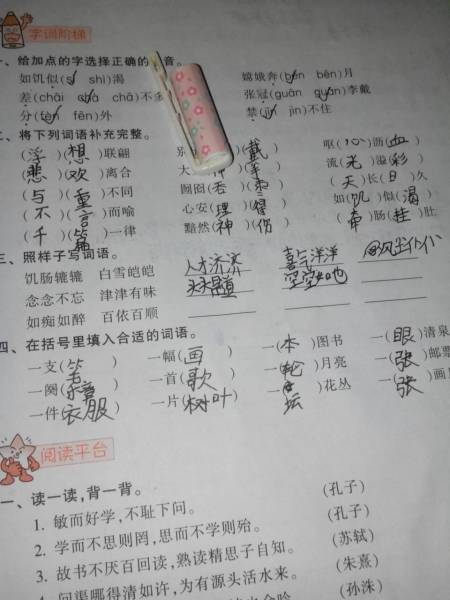 字词阶梯
一、给加点的字选择正确的 音。
如饥似(sì shì)渴 嫦娥奔(bēn bèn)月
差(chāi chà chā)不多 张冠(guān guàn)李戴
分(fèn fēn)外 禁(jīn jìn)不住
二、将下列词语补充完整。
(浮)(想)联翩 呕(心)沥(血)
(悲)(欢)离合 流(光)溢(彩)
(与)(重)不同 囫囵(吞)(枣) (天)长(日)久
(不)(言)而喻 心安(理)(得) 如(饥)似(渴)
(千)(篇)一律 黯然(神)(伤) (牵)肠(挂)肚
三、照样子写词语。
饥肠辘辘 白雪皑皑 人才济济 喜气洋洋 风尘仆仆
念念不忘 津津有味
如痴如醉 百依百顺
四、在括号里填入合适的词语。
一支(笔) 一幅(画) 一(本)图书 一(眼)清泉
一阕( ) 一首(歌) 一(轮)月亮 一(张)邮票
一件(衣服) 一片(树叶) 一(坛)花丛 一(张)画
阅读平台
一、读一读,背一背。
1. 敏而好学,不耻下问。 (孔子)
2. 学而不思则罔,思而不学则殆。 (孔子)
3. 故书不厌百回读,熟读精思子自知。 (苏轼)
4. 问渠哪得清如许,为有源头活水来。 (朱熹)
(孙洙)